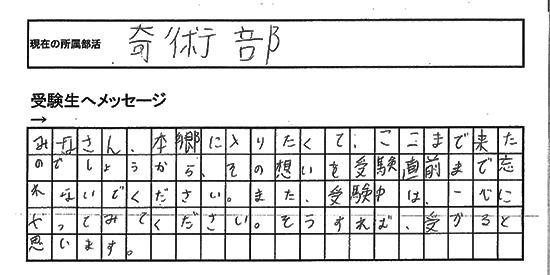 現在の所属部活 奇術部
受験生へメッセージ
→
みなさん、本郷に入りたくて、ここまで来た
のでしょうから、その想いを受験直前まで忘
れないでください。また、受験中は、一心に
やってみてください。そうすれば、受かると
思います。